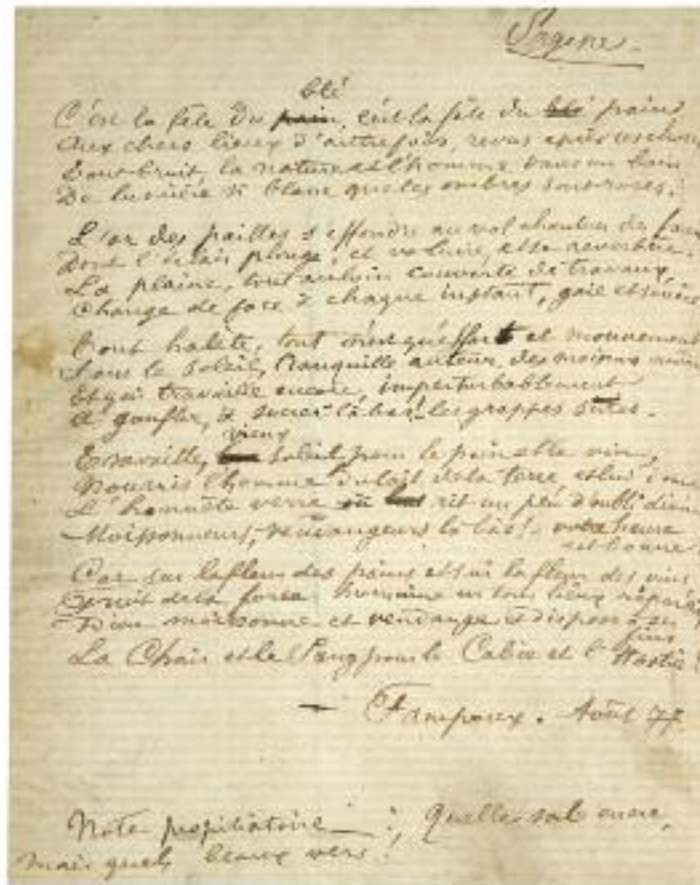 Sagesse.
blé
C'est la fête du pain, c'est la fête du blé pain
Aux chers lieux d'autrefois, revus après ces choses
Tout bruit, la nature et l'homme dans un bain
De lumière si blanc que les ombres sont roses.
L'or des pailles s'effondre au vol chanteur des faux
Dont l'éclair plonge, et va luire, et se réverbère.
La plaine, tout au loin couverte de travaux,
Change de face à chaque instant, gaie et sévère
Tout halète, tout n'est qu'effort et mouvement
Sous le soleil, tranquille auteur des moissons mûres
Et qui travaille encore, imperturbablement
A gonfler, à sucrer là-bas! les grappes sûres.
vieux
Travaille, soleil pour le pain et le vin,
Nourris l'homme du lait de la terre et lui
L'honnête verre où rit un peu d'oubli divin
Moissonneurs, vendangeurs là-bas! votre heure
est bonne
Car sur la fleur des pains et sur la fleur des vins
Fruit de la force humaine en tous lieux répartie
Dieu moissonne et vendange et dispose à ses
fins
La Chair et le Sang pour le Calice et l'Hostie
— Fampoux. Août 77
Note propitiatoire : Quelle sale encre,
mais quels beaux vers!